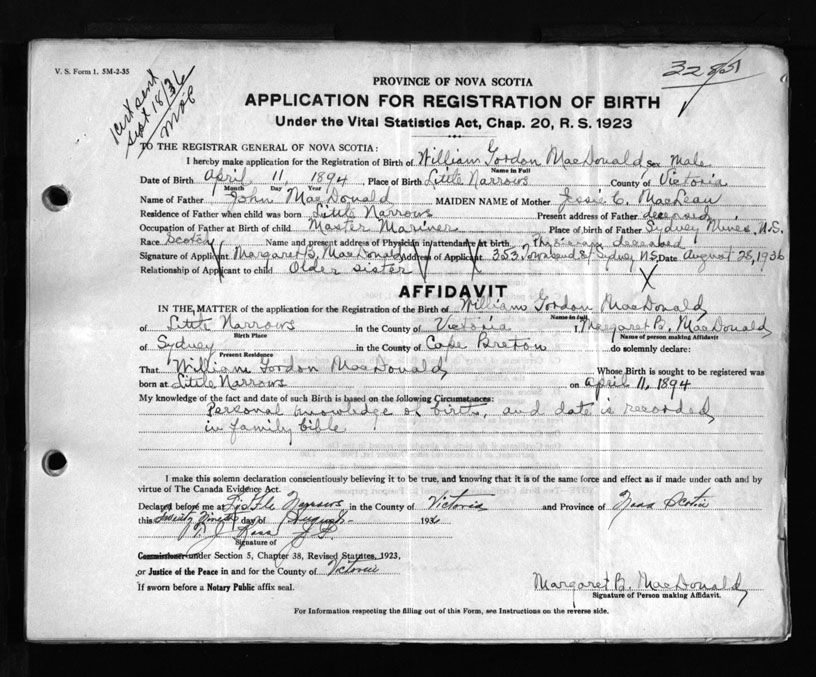 V. S. Form 1. 5M-2-35
32851
cert sent
Sept 18/36
PROVINCE OF NOVA SCOTIA
APPLICATION FOR REGISTRATION OF BIRTH
Under the Vital Statistics Act, Chap. 20, R. S. 1923
TO THE REGISTRAR GENERAL OF NOVA SCOTIA:
I hereby make application for the Registration of Birth of William Gordon MacDonald Sex Male
Name in Full
Date of Birth April 11, 1894, Place of Birth Little Narrows County of Victoria
Month Day Year
Name of Father John MacDonald MAIDEN NAME of Mother Jessie C. MacLean
Residence of Father when child was born Little Narrows Present address of Father deceased
Occupation of Father at Birth of child Master Mariner Place of birth of Father Sydney Mines, N.S.
Race Scotch Name and present address of Physician in attendance at birth Physician deceased
Signature of Applicant Margaret B. MacDonald Address of Applicant 353 Townsend St Sydney N.S. Date August 28, 1936
Relationship of Applicant to child Older sister
AFFIDAVIT
IN THE MATTER of the application for the Registration of the Birth of William Gordon MacDonald
Name in full
of Little Narrows in the County of Victoria I, Margaret B. MacDonald
Birth Place Name of person making Affidavit
of Sydney in the County of Cape Breton do solemnly declare:
Present Residence
That William Gordon MacDonald Whose Birth is sought to be registered was
born at Little Narrows on April 11, 1894
My knowledge of the fact and date of such Birth is based on the following Circumstances:
Personal knowledge of birth, and date is recorded
in family bible
I make this solemn declaration conscientiously believing it to be true, and knowing that it is of the same force and effect as if made under oath and by
virtue of The Canada Evidence Act.
Declared before me at Little Narrows in the County of Victoria and Province of Nova Scotia
this Twenty Ninth day of August 1936
Ross J.P.
Signature of
Commissioner under Section 5, Chapter 38, Revised Statutes, 1923,
or Justice of the Peace in and for the County of Victoria
If sworn before a Notary Public affix seal.
Margaret B. MacDonald
Signature of Person making Affidavit.
For Information respecting the filling out of this Form, see Instructions on the reverse side.